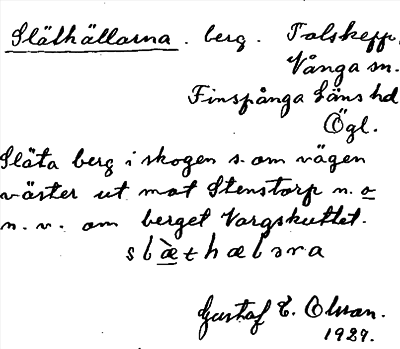 Släthällarna. berg. Falskepp.
Vånga sn.
Finspånga Läns hd
Ögl.
Släta berg i skogen s. om vägen
väster ut mot Stenstorp n. o
n. v. om berget Vargskuttet.
slæ̀thælǝra
Gustaf E. Olsson.
1927.